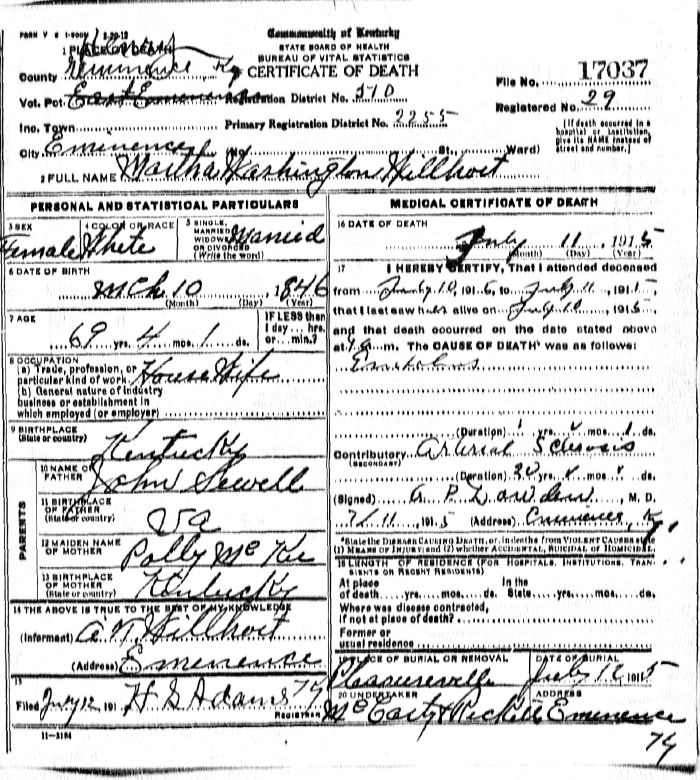 FORM V S 1-500M 8-20-12
Commonwealth of Kentucky
STATE BOARD OF HEALTH
BUREAU OF VITAL STATISTICS
CERTIFICATE OF DEATH
1 PLACE OF DEATH Henry
County Eminence Ky
Vot. Pct. East Eminence Registration District No. 510
File No. 17037
Inc. Town Primary Registration District No. 2255
Registered No. 29
City Eminence (No. St., Ward)
[If death occurred in a hospital or institution, give its NAME instead of street and number.]
2 FULL NAME Martha Washington Hillhoit
PERSONAL AND STATISTICAL PARTICULARS
3 SEX Female
4 COLOR OR RACE White
5 SINGLE, MARRIED, WIDOWED OR DIVORCED (Write the word) Married
6 DATE OF BIRTH
Mch 10 1846
(Month) (Day) (Year)
7 AGE
69 yrs. 4 mos. 1 ds.
IF LESS than 1 day... hrs. or... min.?
8 OCCUPATION
(a) Trade, profession, or particular kind of work House Wife
(b) General nature of industry business or establishment in which employed (or employer)
9 BIRTHPLACE (State or country) Kentucky
PARENTS
10 NAME OF FATHER John Sewell
11 BIRTHPLACE OF FATHER (State or country) Va
12 MAIDEN NAME OF MOTHER Polly McKee
13 BIRTHPLACE OF MOTHER (State or country) Kentucky
14 THE ABOVE IS TRUE TO THE BEST OF MY KNOWLEDGE
(Informant)
(Address) Eminence
15
Filed July 12 191 H S Adams
REGISTRAR
11-3184
MEDICAL CERTIFICATE OF DEATH
16 DATE OF DEATH
July 11, 1915
(Month) (Day) (Year)
17 I HEREBY CERTIFY, That I attended deceased
from July 10, 191 to July 11, 1915
that I last saw her alive on July 10, 1915
and that death occurred on the date stated above
at m. The CAUSE OF DEATH* was as follows:
Embolus
(Duration) yrs. mos. 1 ds.
Contributory (SECONDARY) Arterial Sclerosis
(Duration) 20 yrs. mos. ds.
(Signed) A. P. Dowden, M. D.
7/11 1915 (Address) Eminence Ky
*State the DISEASE CAUSING DEATH, or, in deaths from VIOLENT CAUSES state (1) MEANS OF INJURY; and (2) whether ACCIDENTAL, SUICIDAL or HOMICIDAL.
18 LENGTH OF RESIDENCE (FOR HOSPITALS, INSTITUTIONS, TRANSIENTS OR RECENT RESIDENTS)
At place of death yrs. mos. ds. In the State yrs. mos. ds.
Where was disease contracted, if not at place of death?
Former or usual residence
19 PLACE OF BURIAL OR REMOVAL Pleasureville
DATE OF BURIAL July 12 1915
20 UNDERTAKER McCarty & Rickett
ADDRESS Eminence
Ky